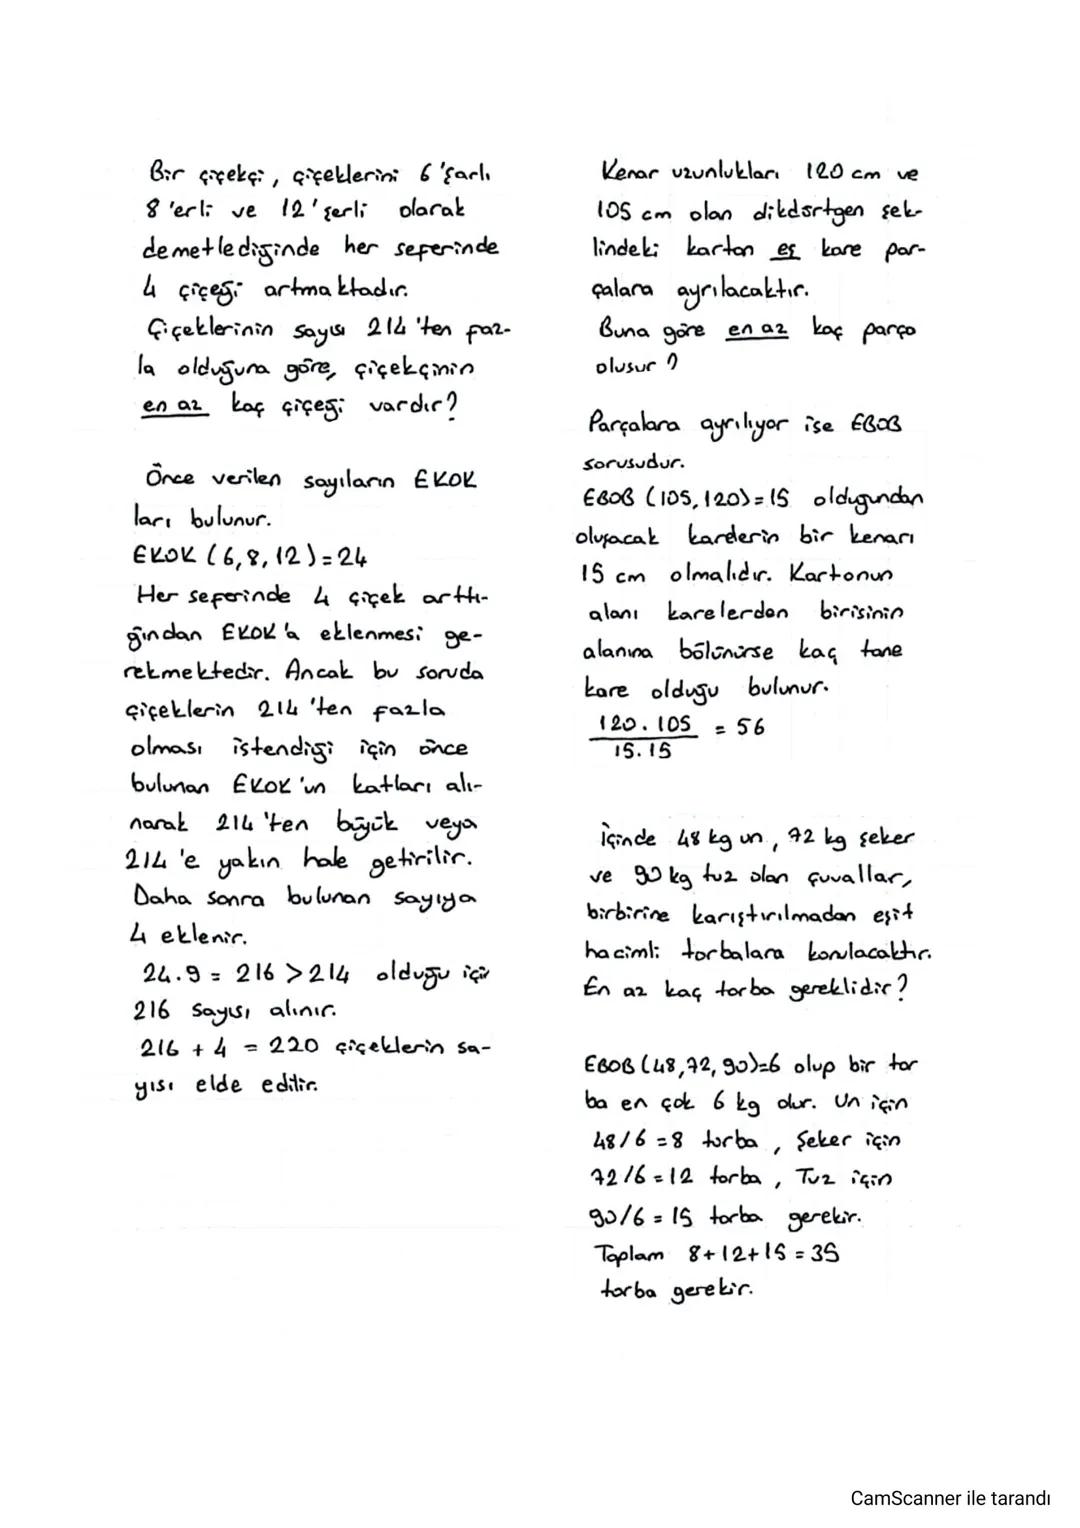 Bir çiçekçi, çiçeklerini 6'şarlı
8'erli ve 12'şerli olarak
demetlediğinde her seferinde
4 çiçeği artmaktadır.
Çiçeklerinin sayısı 214'ten faz-
la olduğuna göre, çiçekçinin
en az kaç çiçeği vardır?
Önce verilen sayıların EKOK
ları bulunur.
EKOK (6,8,12)=24
Her seferinde 4 çiçek arttı-
ğından EKOK'a eklenmesi ge-
rekmektedir. Ancak bu soruda
çiçeklerin 214'ten fazla
olması istendiği için önce
bulunan EKOK'un katları alı-
narak 214'ten büyük veya
214'e yakın hale getirilir.
Daha sonra bulunan sayıya
4 eklenir.
24.9 = 216 > 214 olduğu için
216 sayısı alınır.
216 + 4 = 220 çiçeklerin sa-
yısı elde edilir.
Kenar uzunlukları 120 cm ve
105 cm olan dikdörtgen şek-
lindeki karton eş kare par-
çalara ayrılacaktır.
Buna göre en az kaç parça
oluşur?
Parçalara ayrılıyor ise EBOB
sorusudur.
EBOB (105, 120)=15 olduğundan
oluşacak karelerin bir kenarı
15 cm olmalıdır. Kartonun
alanı karelerden birisinin
alanına bölünürse kaç tane
kare olduğu bulunur.
120.105 = 56
15.15
İçinde 48 kg un, 72 kg şeker
ve 90 kg tuz olan çuvallar,
birbirine karıştırılmadan eşit
hacimli torbalara konulacaktır.
En az kaç torba gereklidir?
EBOB (48,72,90)=6 olup bir tor
ba en çok 6 kg olur. Un için
48/6 =8 torba, Şeker için
72/6=12 torba, Tuz için
90/6 = 15 torba gerekir.
Toplam 8+12+15 = 35
torba gerekir.
CamScanner ile tarandı